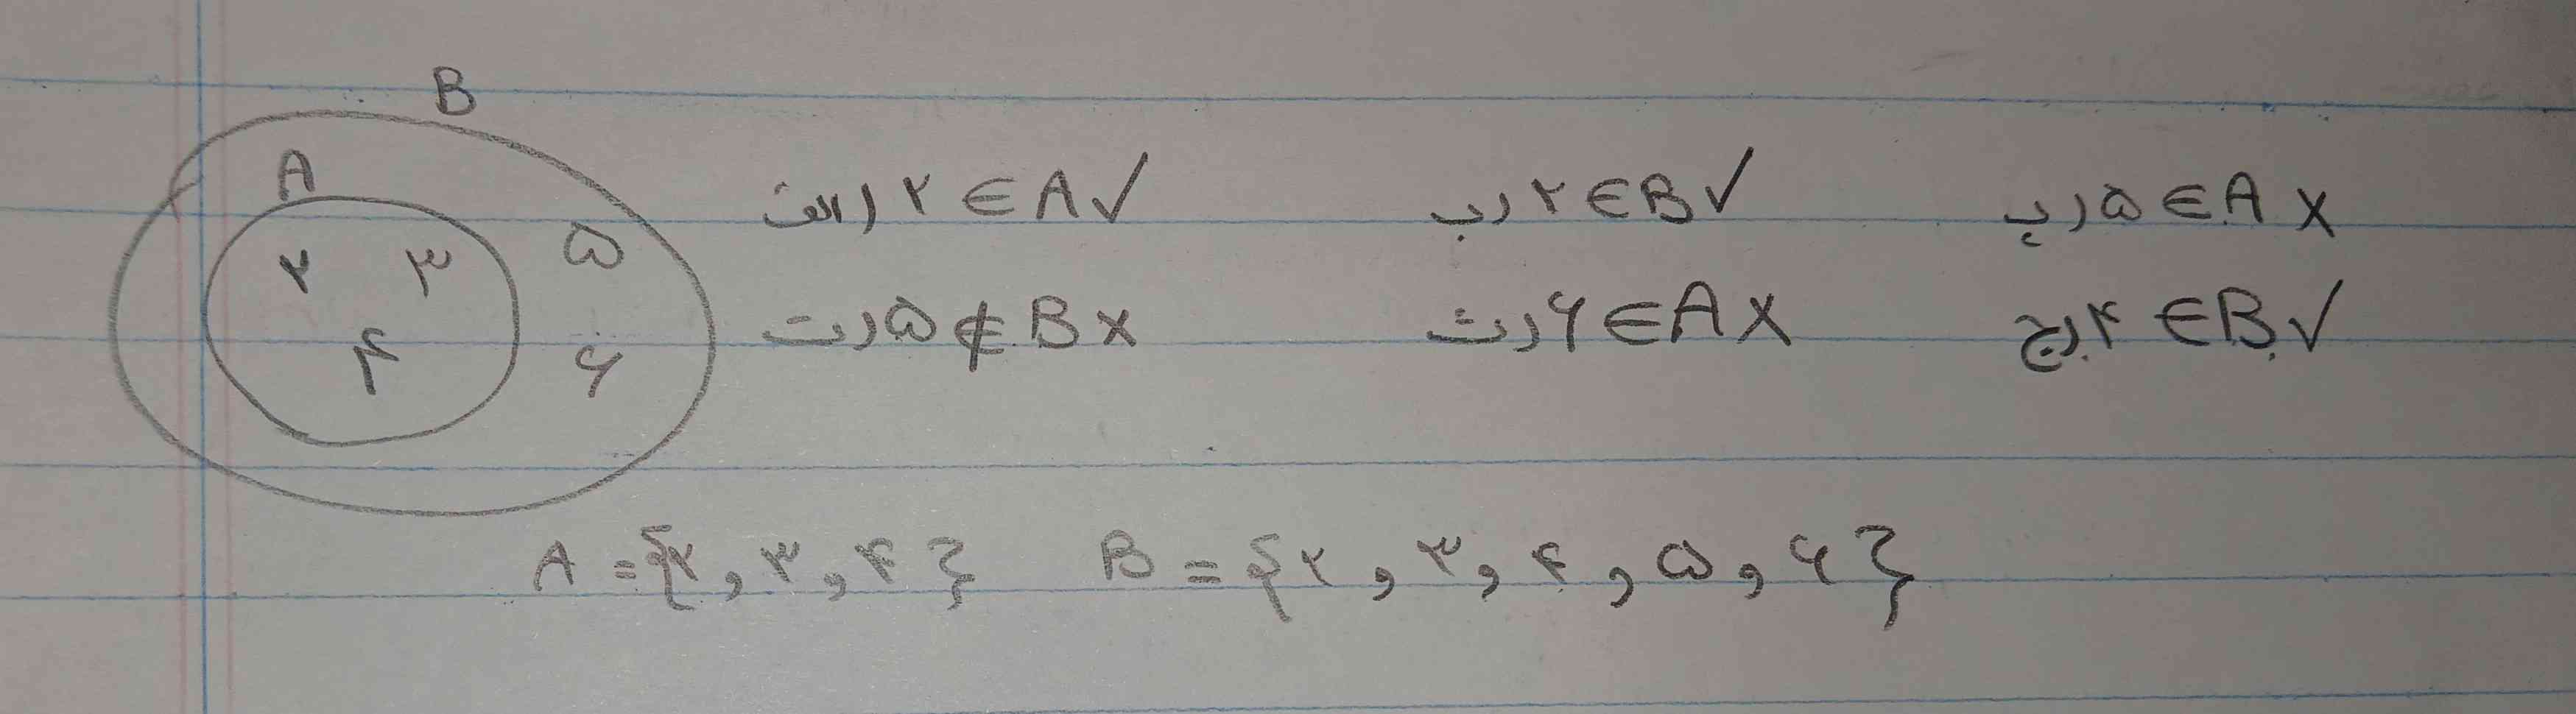 B
A
۲ ۳ ۵
۴ ۶
الف) ۲ ∈ A ✓ ب) ۲ ∈ B ✓ پ) ۵ ∈ A ×
ت) ۵ ∉ B × ث) ۶ ∈ A × ج) ۴ ∈ B ✓
A = {۲, ۳, ۴} B = {۲, ۳, ۴, ۵, ۶}